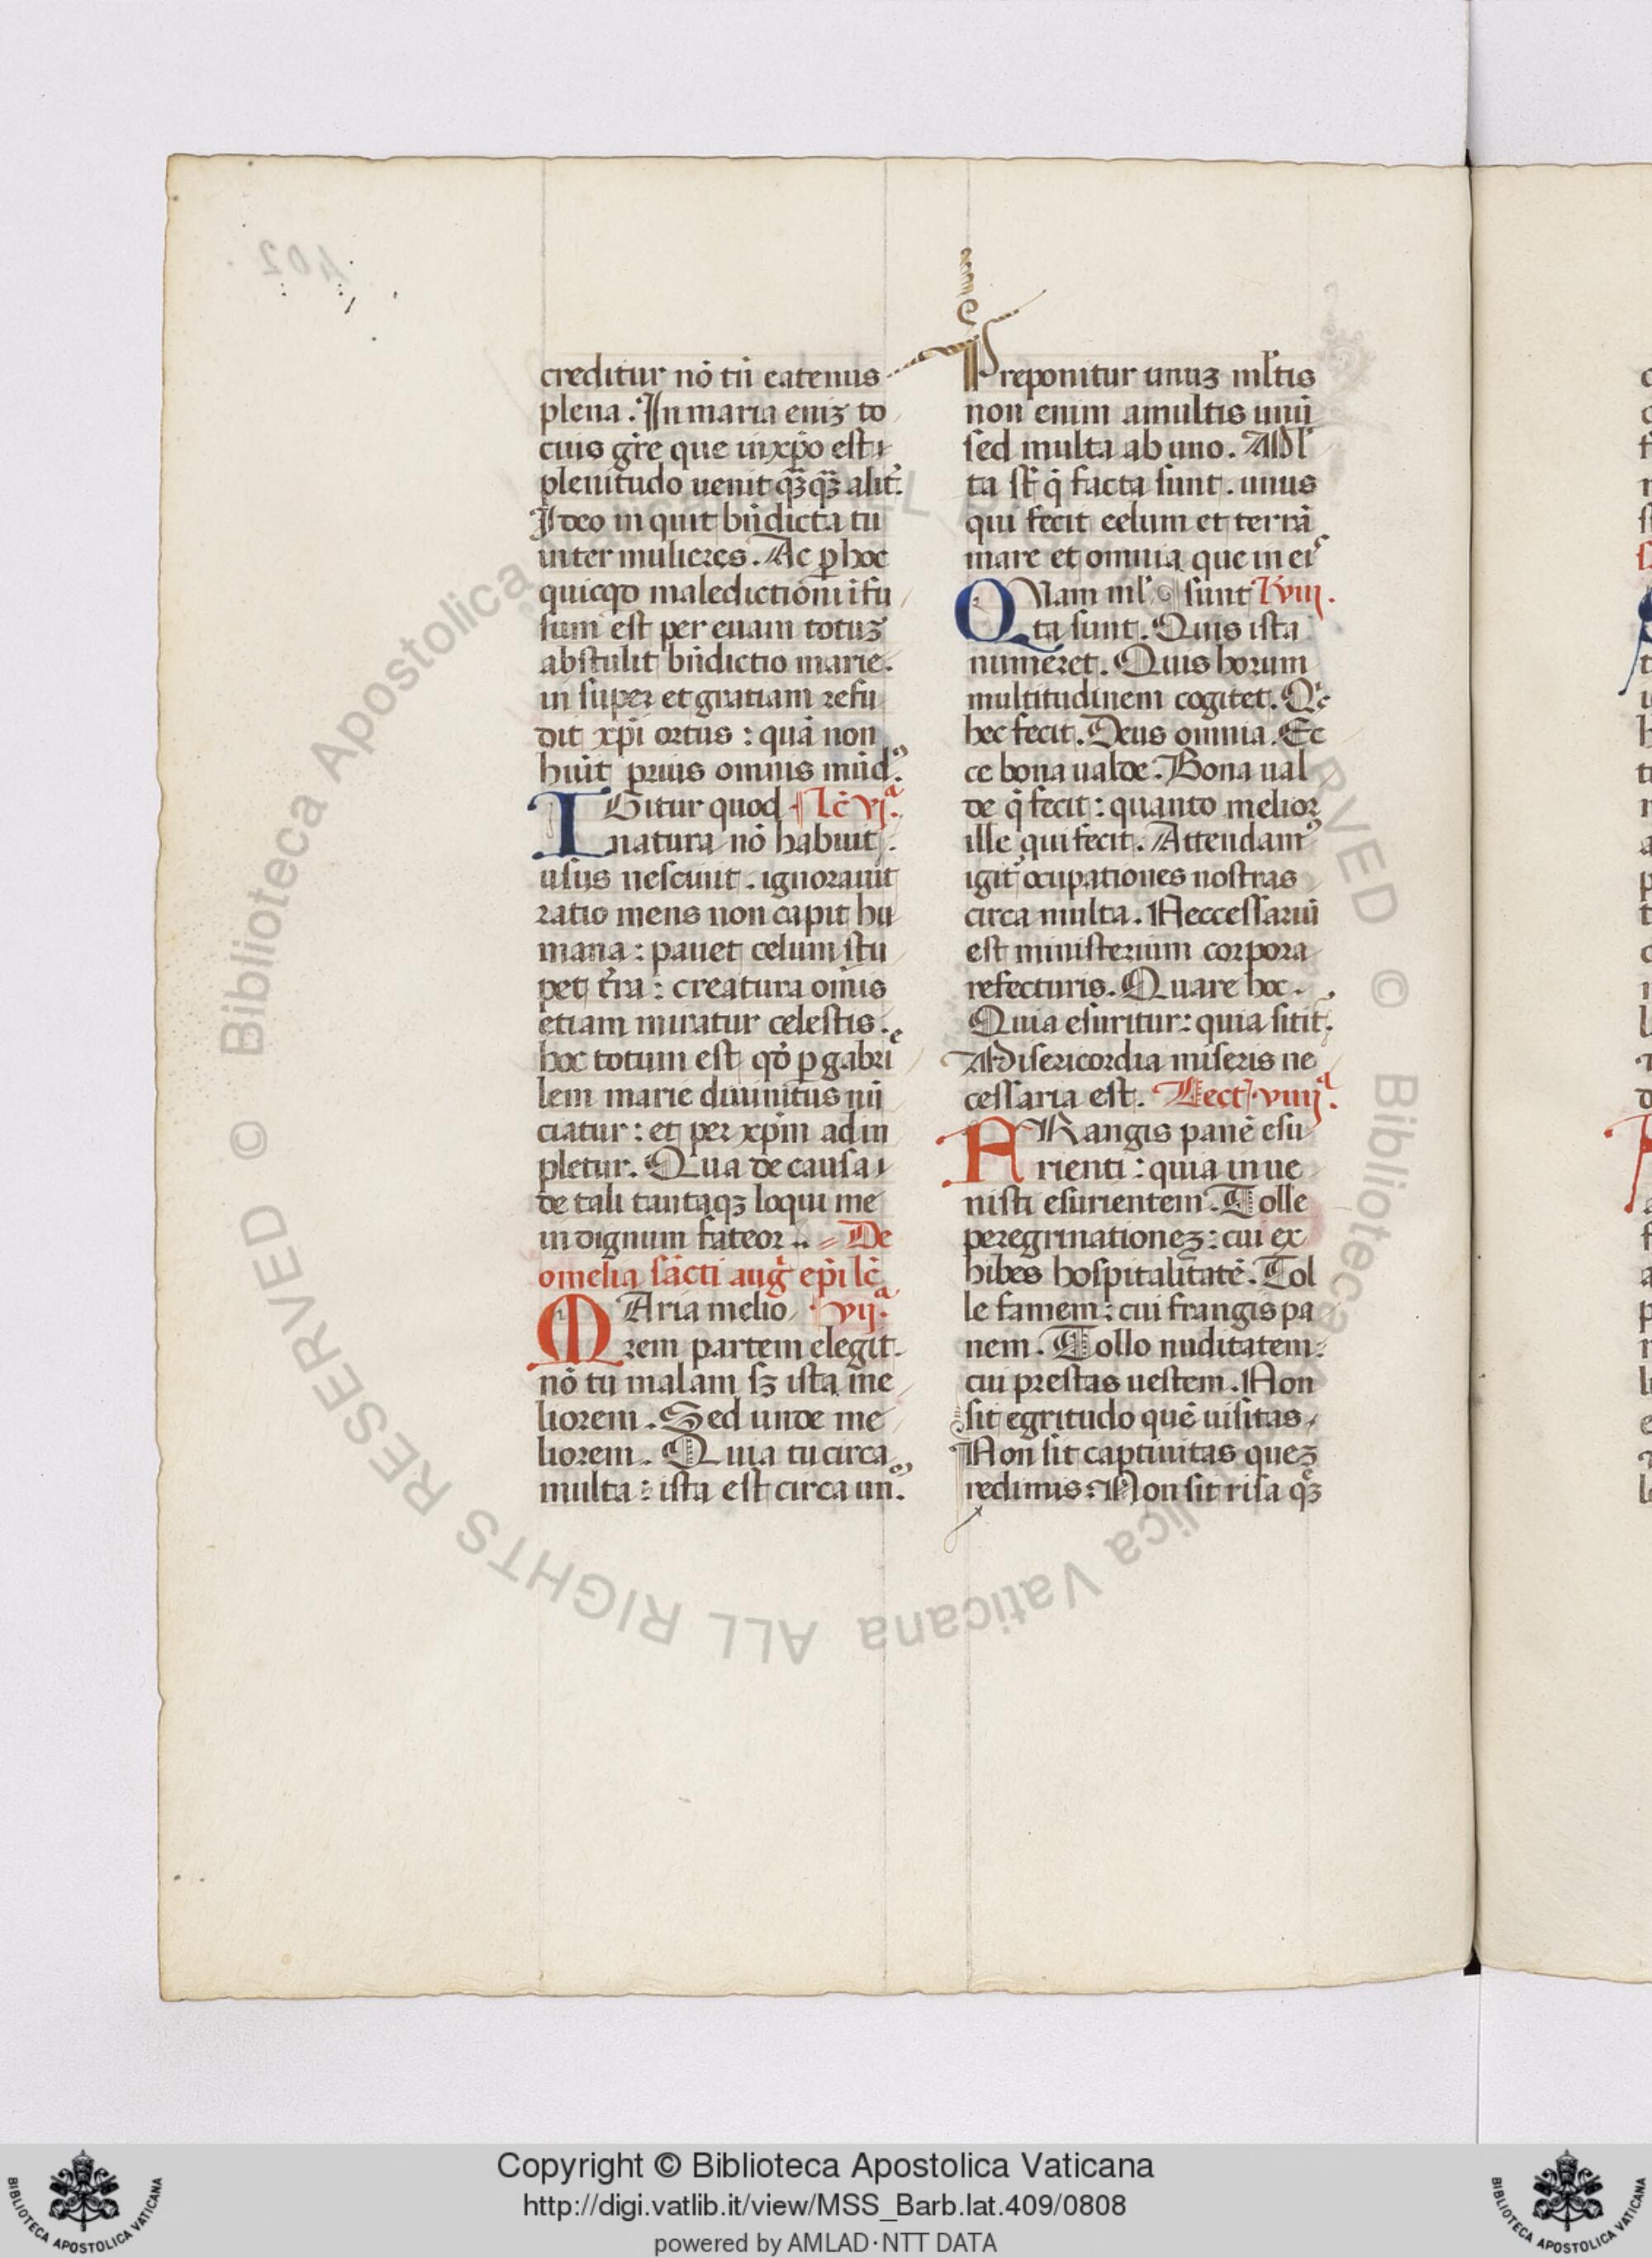 creditur nō tn̄ eatenus
plena. In maria eniꝫ to
cius gr̄e que in xp̄o est
plenitudo uenit qꝫqꝫ alit̕.
Ideo in quit bn̄dicta tu
inter mulieres. Ac ꝑ hoc
quicqd maledictiōni ifu
sum est per euam totuꝫ
abstulit bn̄dictio marie.
in super et gratiam refu
dit xp̄i ortus : quā non
huit prius omnis mūdꝰ.
IGitur quod lc̄ vjª.
natura nō habuit.
usus nesciuit. ignorauit
ratio mens non capit hu
mana : pauet celum stu
pet t̄ra : creatura om̄is
etiam miratur celestis.
hoc totum est qd̄ ꝑ gabrie
lem marie diuinitus nū
ciatur : et per xp̄m adin
pletur. Qua de causa
de tali tantaqꝫ loqui me
in dignum fateor.. De
omelia sāncti auḡ ep̄i lc̄
MAria melio vijª.
rem partem elegit.
nō tu malam sꝫ ista me
liorem. Sed unde me
liorem. Quia tu circa
multa : ista est circa unꝰ.
Preponitur unuꝫ ml̄tis
non enim a multis unū
sed multa ab uno. Ml̄
ta sūt q̄ facta sunt. unus
qui fecit celum et terrā
mare et omnia que in eis
QUam ml̄ sunt ℟viij.
ta sunt. Quis ista
numeret. Quis horum
multitudinem cogitet. Qis
hec fecit. Deus omnia. Ec
ce bona ualde. Bona ual
de q̄ fecit : quanto melior
ille qui fecit. Attendamꝰ
igit̕ ocupationes nostras
circa multa. Neccessariū
est ministerium corpora
refecturis. Quare hoc.
Quia esuritur : quia sitit̕.
Misericordia miseris ne
cessaria est. Lect. viiijª.
FRangis panē esu
rienti : quia inue
nisti esurientem. Tolle
peregrinationeꝫ : cui ex
hibes hospitalitatē. Tol
le famem : cui frangis pa
nem. Tollo nuditatem :
cui prestas uestem. Non
sit egritudo quē uisitas.
Non sit captiuitas queꝫ
redimis. Non sit risa qꝫ
Copyright © Biblioteca Apostolica Vaticana
http://digi.vatlib.it/view/MSS_Barb.lat.409/0808
powered by AMLAD·NTT DATA